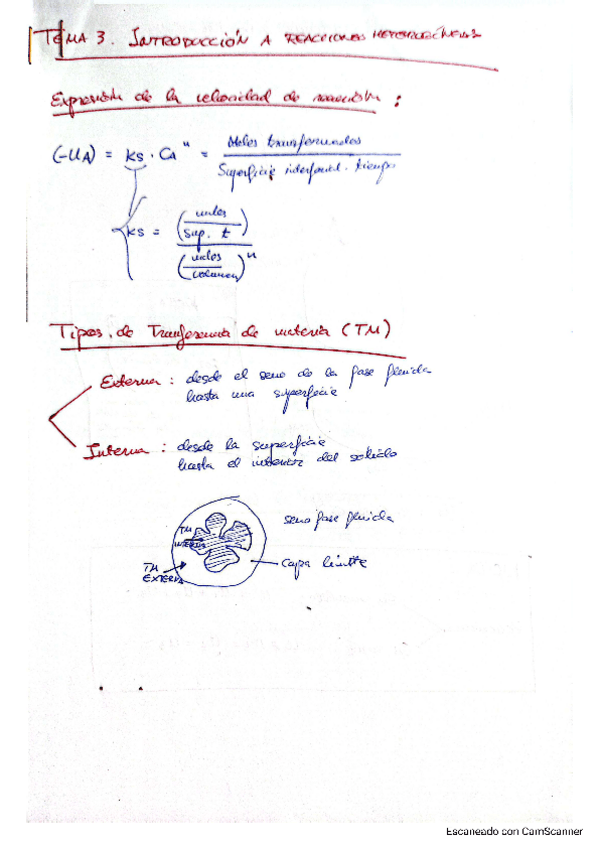 TEMA 3. INTRODUCCIÓN A REACCIONES HETEROGÉNEAS
Expresión de la velocidad de reacción :
(-UA) = ks · CA^n = Moles transformados / Superficie interfacial · tiempo
ks = (moles / sup. t) / (moles / volumen)^n
Tipos de Transferencia de materia (TM)
Externa : desde el seno de la fase fluida
hasta una superficie
Interna : desde la superficie
hasta el interior del sólido
seno fase fluida
TM
INTERNA
capa límite
TM
EXTERNA
Escaneado con CamScanner